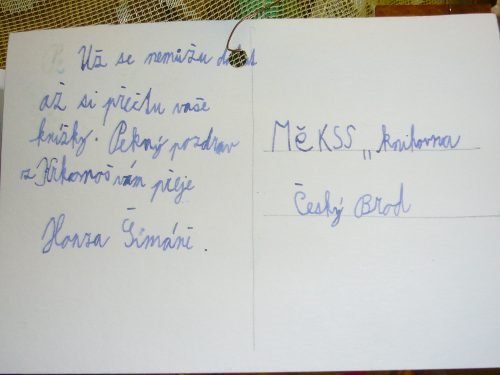 Už se nemůžu
až si přečtu vaše
knížky. Pěkný pozdrav
z Krkonoš vám přeje
Honza Šimáně.
MěKSS „ knihovna
Český Brod